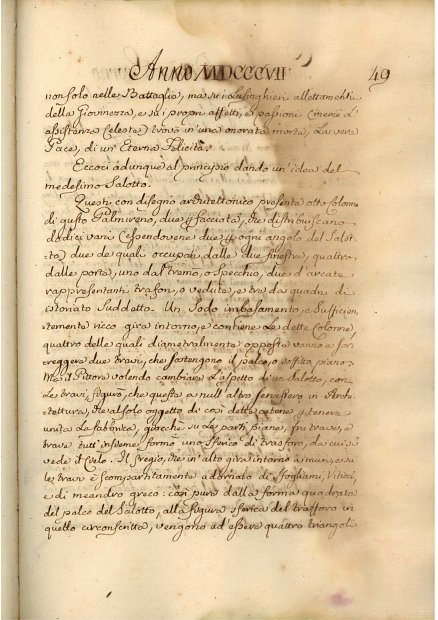 Anno MDCCCVII
49
non solo nelle Battaglia, ma sui Lusinghieri allettamenti
della Giovinezza, e sui propri affetti, e passioni (mercè l'
assistenza Celeste) trova in una onorata morte, la vera
Pace, di un' Eterna Felicità.
Eccoci adunque al principio dando un' idea del
medesimo Salotto.
Questi con disegno architettonico presenta otto Colonne
di gusto Palmireno, due facciata, che distribuiscano
dodici vani (essendovene due ogni angolo del Salot-
to) due de' quali occupati dalle due finestre, quattro
dalle porte, uno dal tremo, o Specchio, due d'arcate
rappresentanti trafori, o vedute, e tre da quadri di
istoriato Suddetto. Un Sodo imbasamento, e Sufficien-
temente ricco gira intorno, e contiene Le dette Colonne,
quattro delle quali diametralmente opposte vanno a for-
reggere due travi, che sostengono il palco, o soffito, piano.
Mà il Pittore volendo cambiare L'aspetto di un Salotto, con
Le travi, figurò, che queste a null' altro servissero in Archi-
tettura, che al solo oggetto di così dette catene tenere
unita La fabbrica, giacchè su Le parti piane, fra trave, e
trave tutt' insieme formò uno sferico di trasforo, da cui si
vede il Cielo. Il fregio, che in alto gira intorno a muri, e su
le travi è scompartitamente adornato di sfogliami, Viticci,
e di meandro greco: con pure dalla forma quadrata
del palco del Salotto, alla figura sferica del trafforo in
quello circonscritta, vengono ad essere quattro triangoli